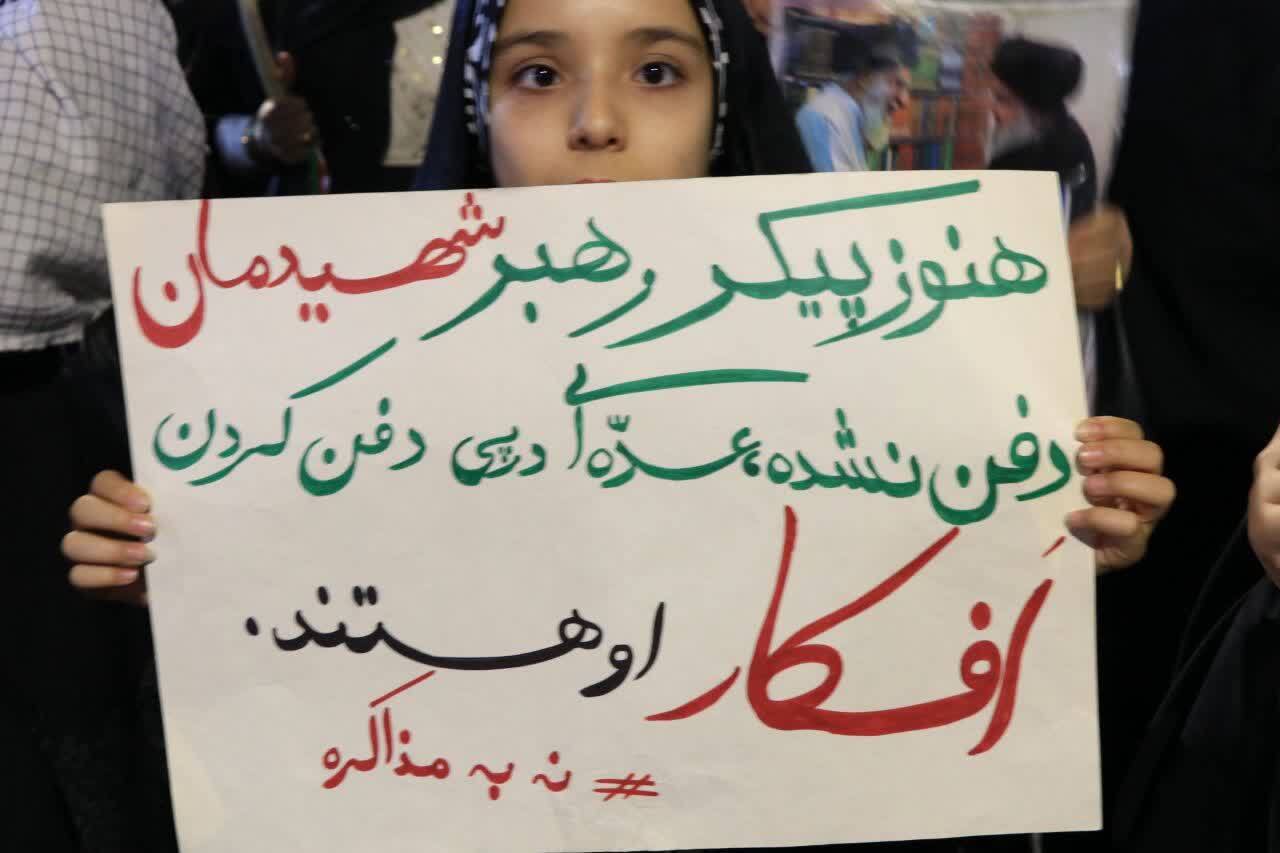 هنوز پیکر رهبر شهیدمان
دفن نشده، عدّه‌ای درپی دفن کردن
اَفکار او هستند.
# نه به مذاکره